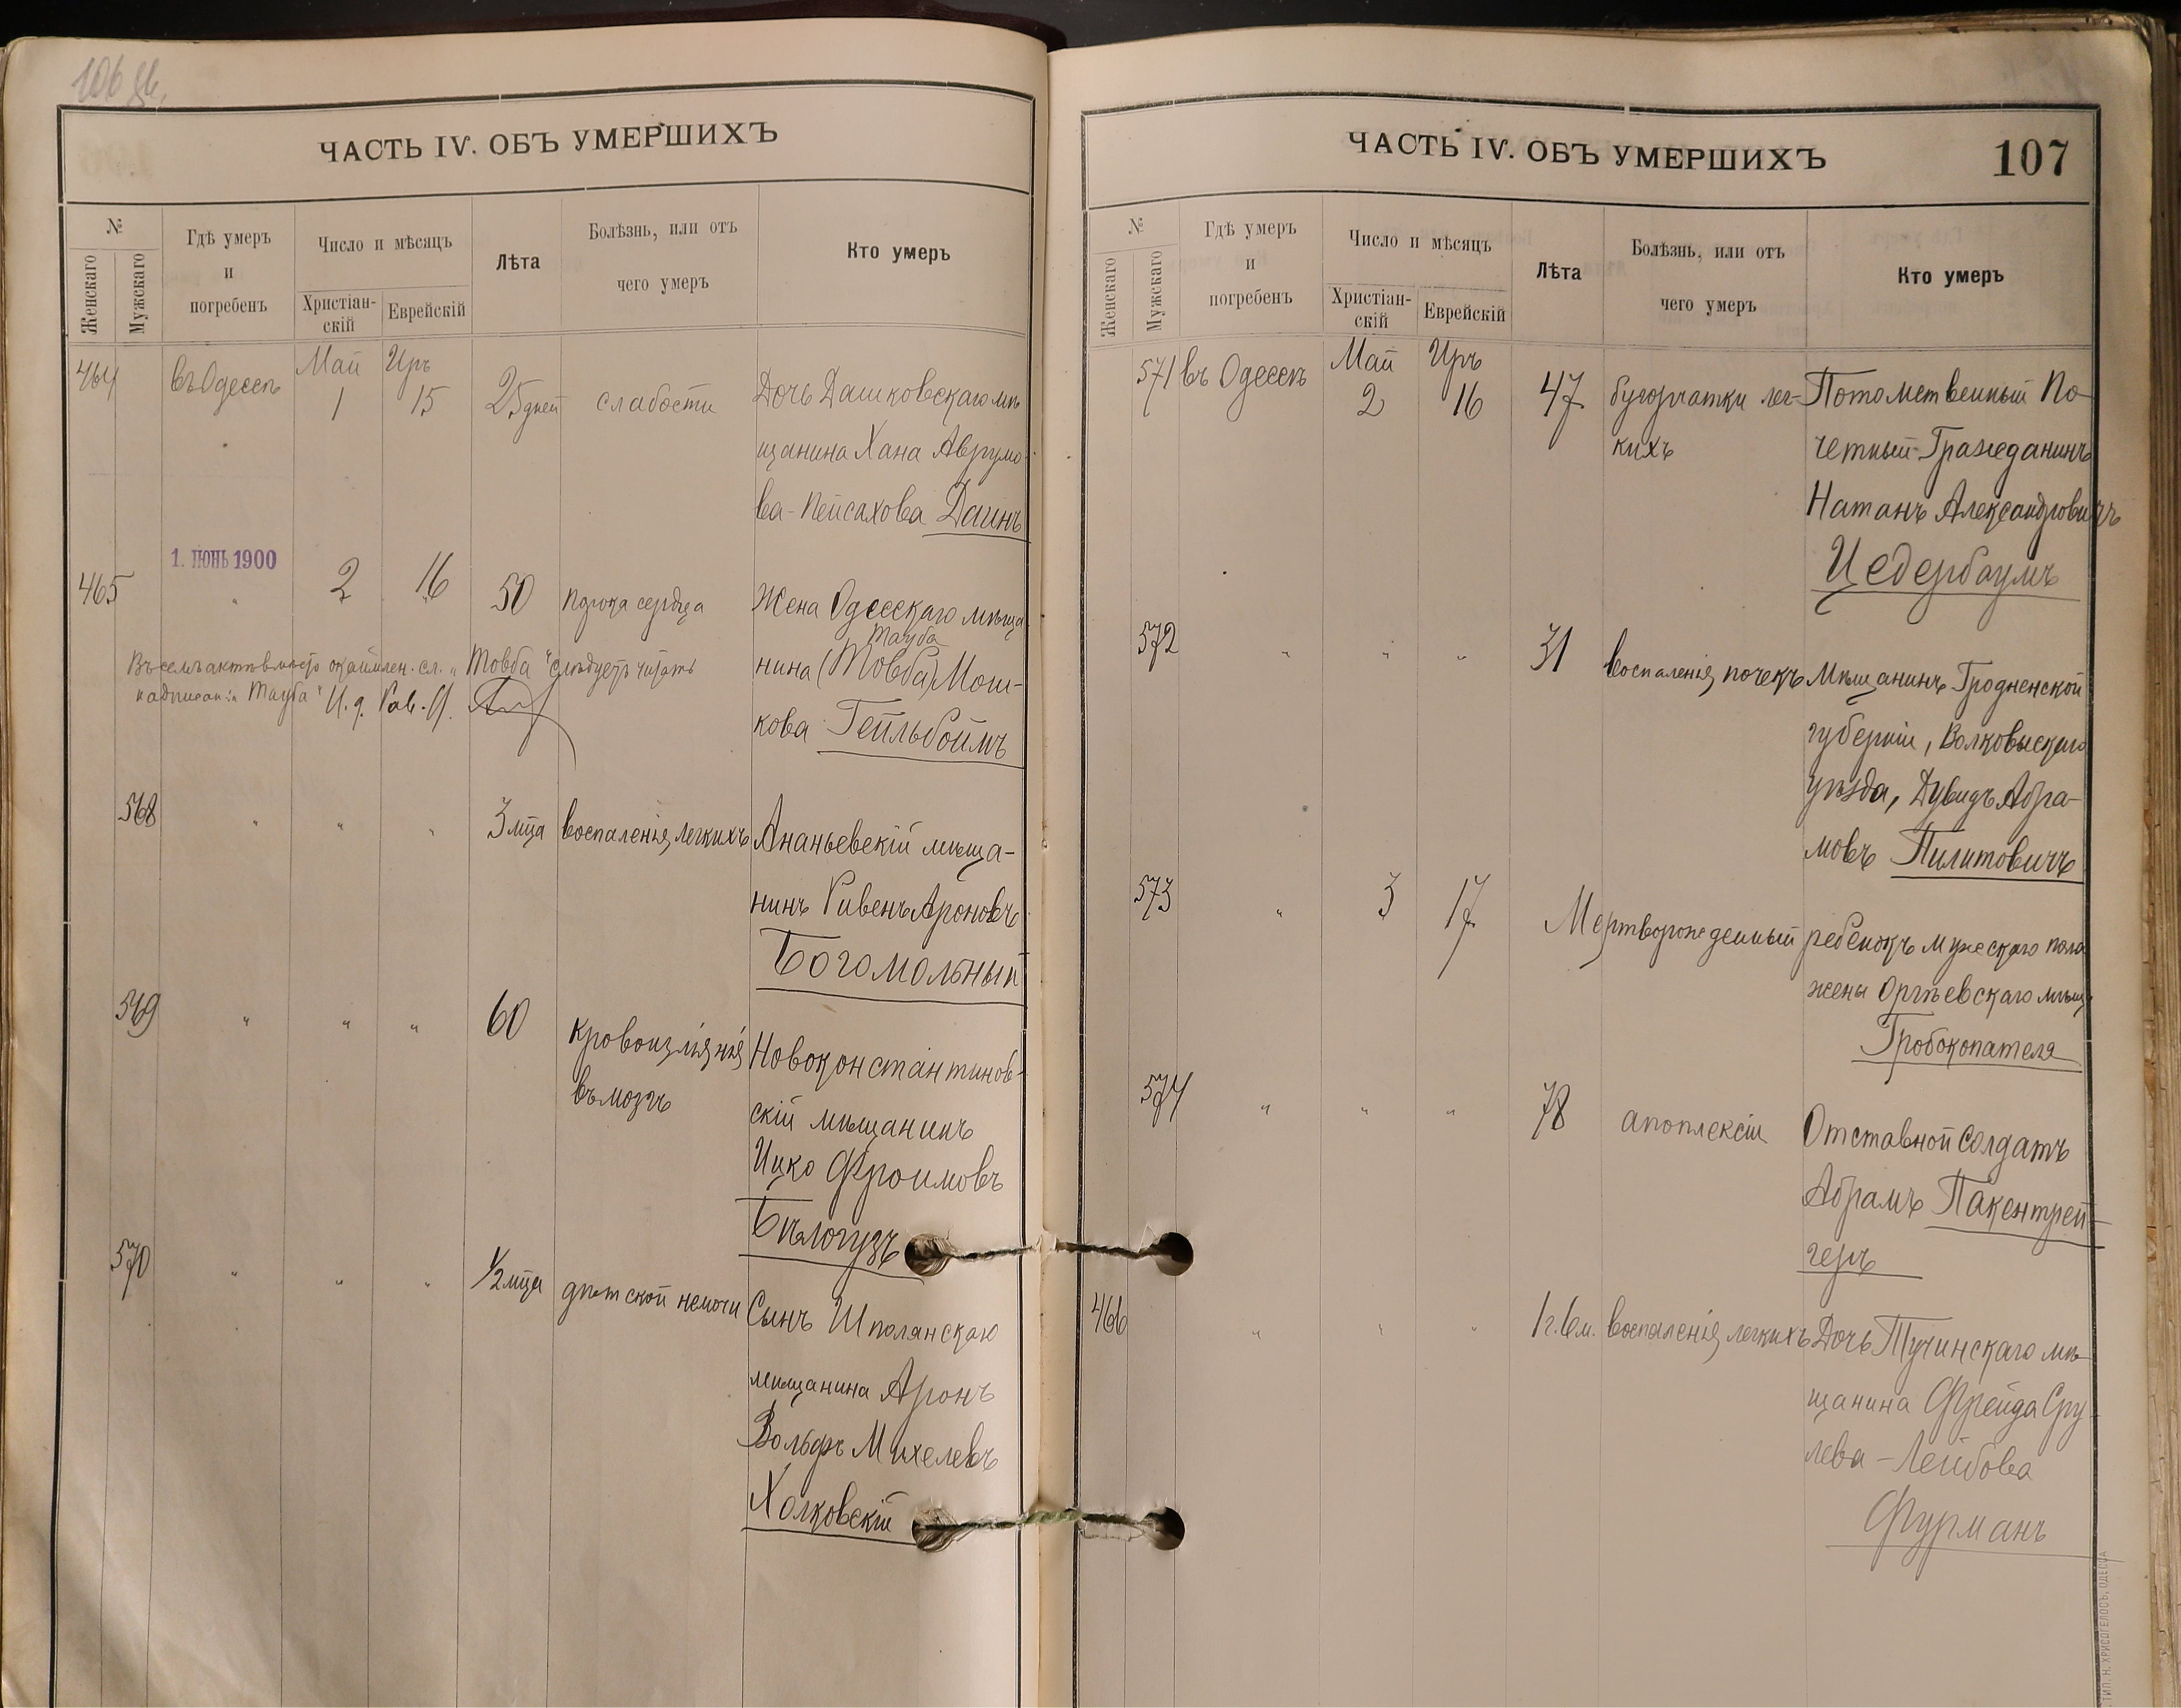 106 об.
ЧАСТЬ IV. ОБЪ УМЕРШИХЪ
№
Женскаго
Мужскаго
Гдѣ умеръ
и
погребенъ
Число и мѣсяцъ
Христіан-
скій
Еврейскій
Лѣта
Болѣзнь, или отъ
чего умеръ
Кто умеръ
464 въ Одессѣ Май 1 Иръ 15 25 дней слабости Дочь Дашковскаго мѣ-
щанина Хана Аврумо-
ва-Пейсахова Даинъ
1. ІЮНЬ 1900
465 " 2 16 50 порока сердца Жена Одесскаго мѣща-
Тауба
нина (Товба) Мош-
кова Гейльбоймъ
Въ семъ актѣ вмѣсто окаймлен. сл. "Товба" слѣдуетъ читать
надписан: "Тауба" И. д. Рав.
568 " " " 3 мца воспаленія легкихъ Ананьевскій мѣща-
нинъ Ривенъ Ароновъ
Богомольный
569 " " " 60 кровоизліянія Новоконстантинов-
въ мозгъ
скій мѣщанинъ
Ицко Фроимовъ
Бѣлогузъ
570 " " " 1/2 мца дѣтской немочи Сынъ Шполянскаго
мѣщанина Аронъ
Вольфъ Михелевъ
Холковскій
ЧАСТЬ IV. ОБЪ УМЕРШИХЪ
107
№
Женскаго
Мужскаго
Гдѣ умеръ
и
погребенъ
Число и мѣсяцъ
Христіан-
скій
Еврейскій
Лѣта
Болѣзнь, или отъ
чего умеръ
Кто умеръ
571 въ Одессѣ Май 2 Иръ 16 47 бугорчатки лег- Потомственный По-
кихъ четный Гражданинъ
Натанъ Александровичъ
Цедербаумъ
572 " " " 31 воспаленія почекъ Мѣщанинъ Гродненской
губерніи, Волковыскаго
уѣзда, Дувидъ Абра-
мовъ Пилитовичъ
573 " 3 17 Мертворожденный ребенокъ мужескаго пола
жены Оргѣевскаго мѣщ.
Гробокопателя
574 " " " 78 апоплексіи Отставной солдатъ
Абрамъ Пакентрей-
геръ
466 " " " 1 г. 6 м. воспаленія легкихъ Дочь Тучинскаго мѣ-
щанина Фрейда Сру-
лева-Лейбова
Фурманъ
ТИП. Н. ХРИСОГЕЛОСЪ, ОДЕССА